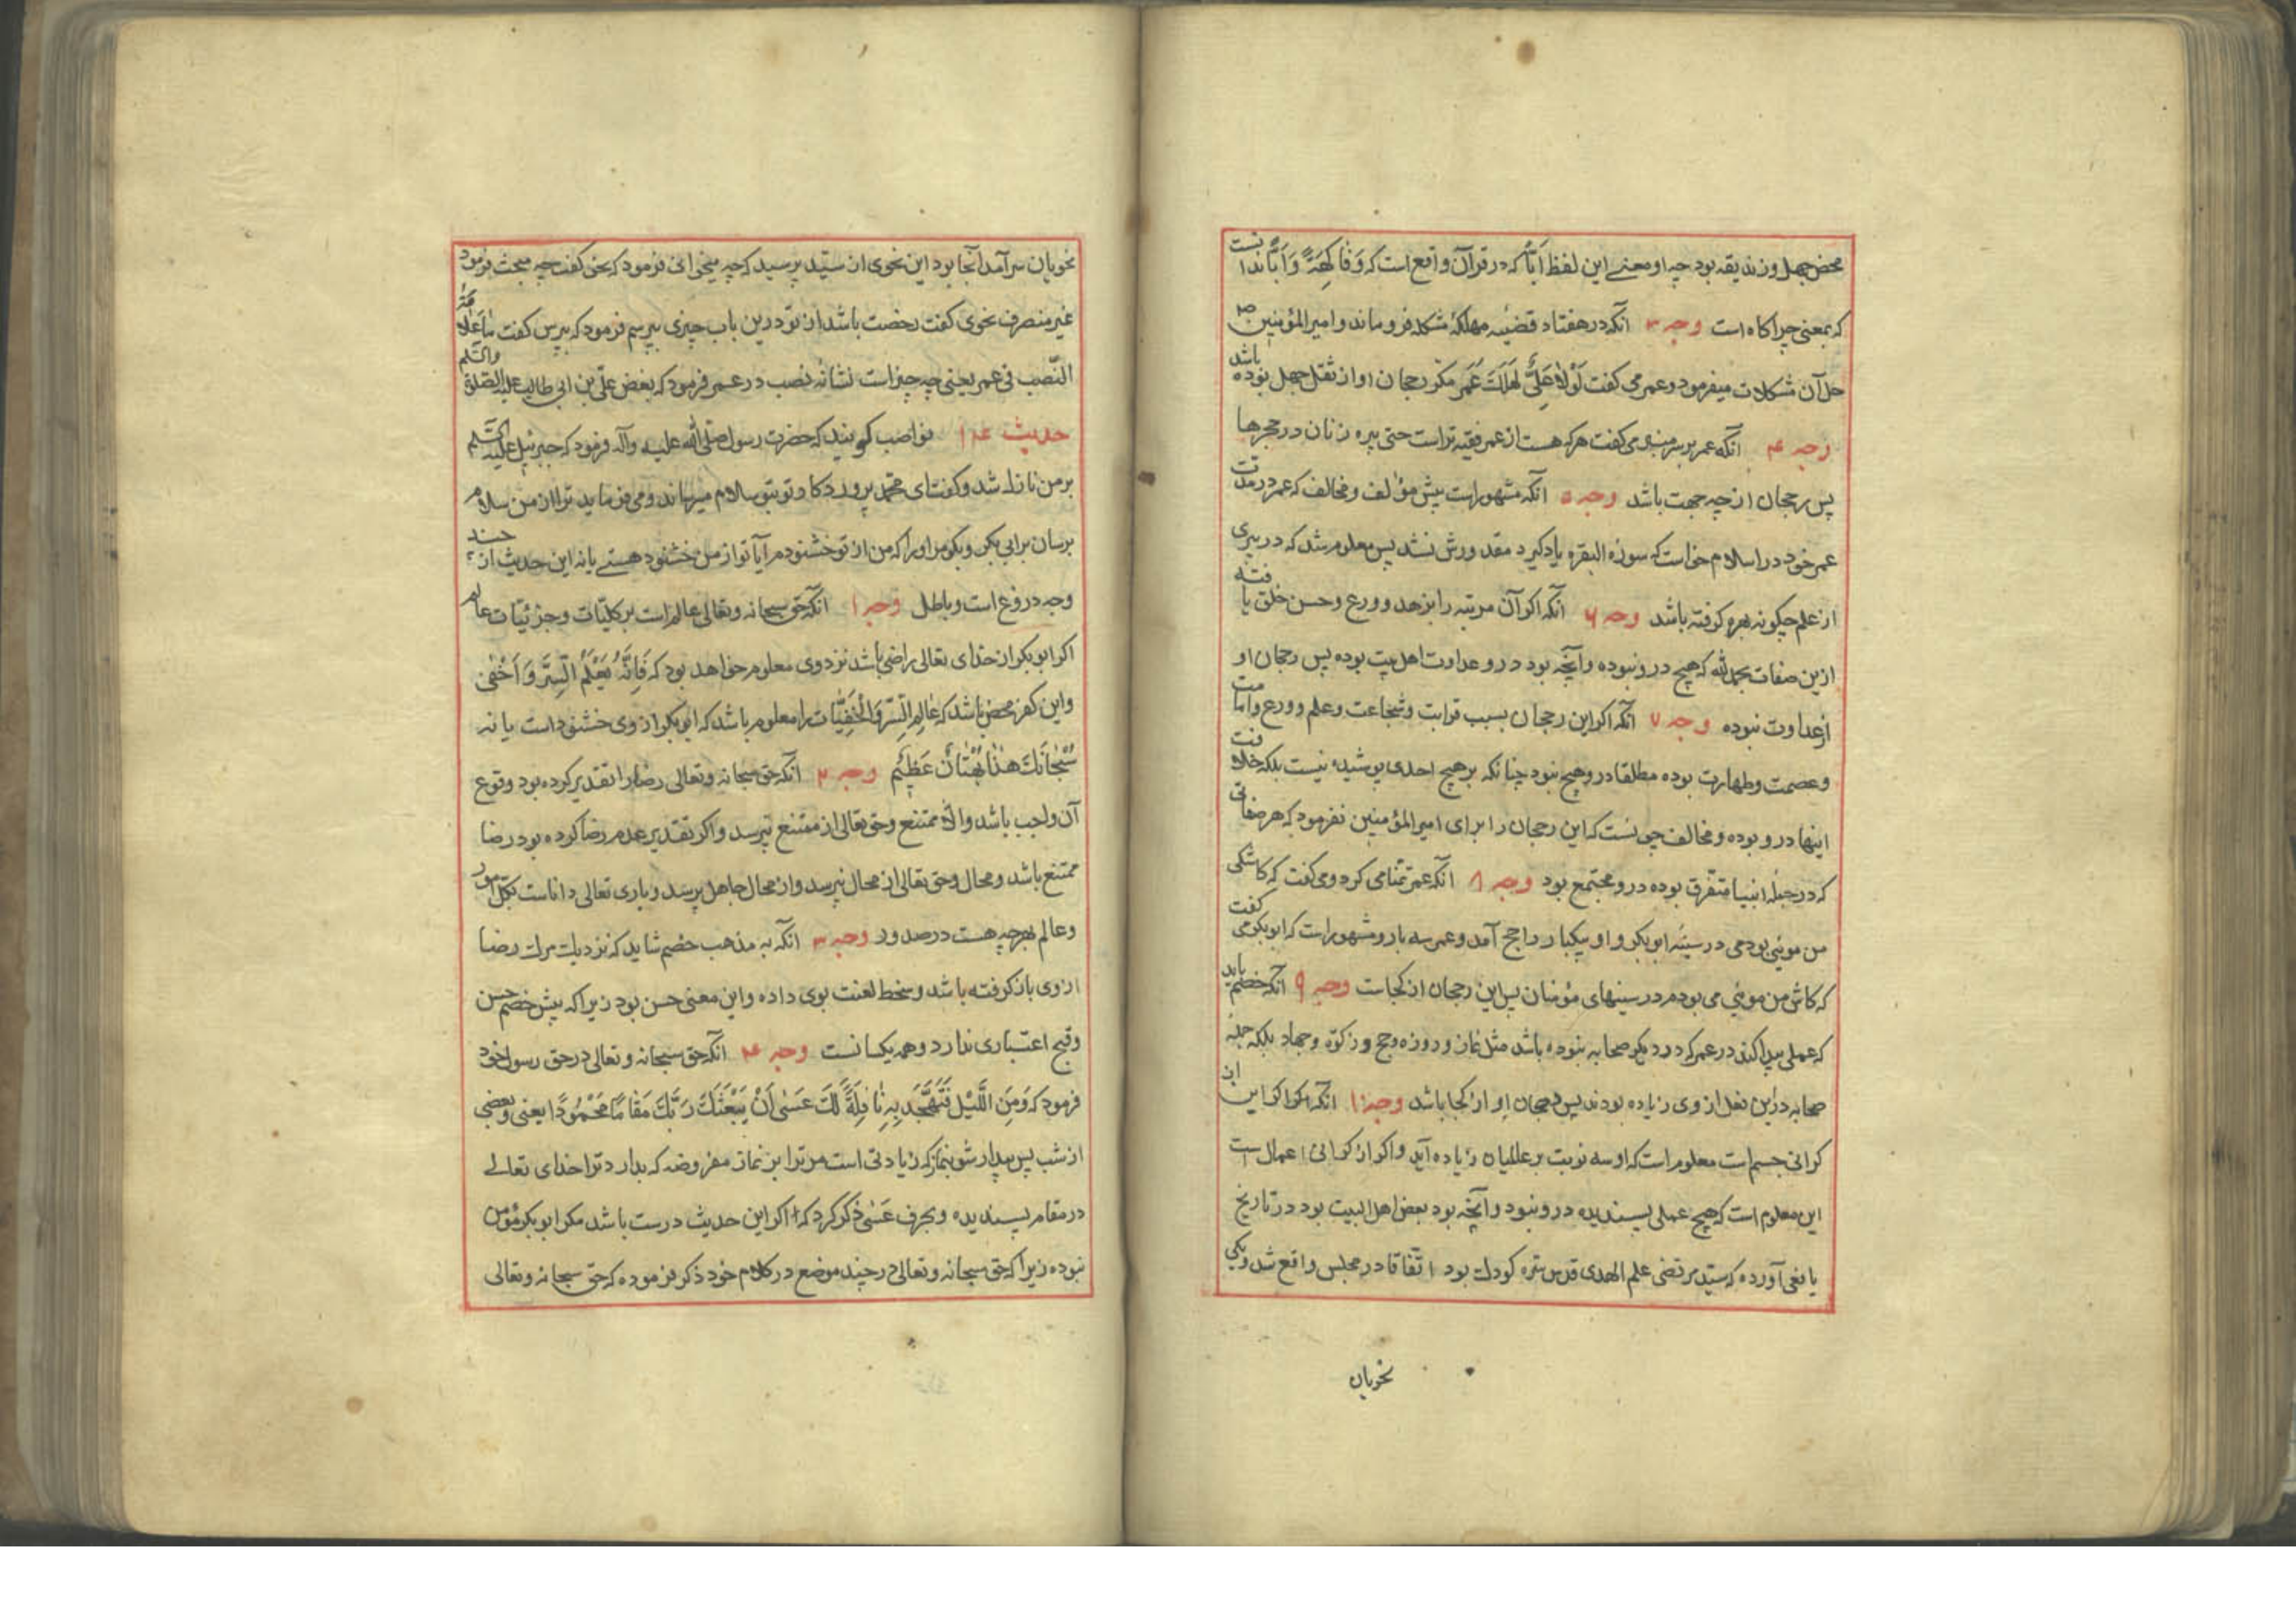 محض جهل و زندیقه بود چه او معنی این لفظ ابّا که در قرآن واقع است که وَفَاكِهَةً وَاَبًّا ندانست
که بمعنی چراکاه است وجه ۳ انکه در هفتاد قضیه مهلکهٔ مشکله فرو ماند و امیر المؤمنین ع
حل آن مشکلات میفرمود و عمر می کفت لَوْلَا عَلِيٌّ لَهَلَكَ عُمَر مکر رجحان او از ثقل جهل بوده باشد
وجه ۴ انکه عمر بر سر منبر می کفت هر که هست از عمر فقیه تر است حتی پیره زنان در حجرها
پس رجحان از چه جهت باشد وجه ۵ انکه مشهور است پیش مؤالف و مخالف که عمر در مدت
عمر خود در اسلام خواست که سوره البقره یاد کیرد مقدورش نشد پس معلوم شد که در پیری
از علم چکونه بهره کرفته باشد وجه ۶ انکه اکر آن مرتبه را بزهد و ورع و حسن خلق یافته
ازین صفات بحمد لله که هیچ درو نبوده و آنچه بود درو عداوت اهل بیت بوده پس رجحان او
از عداوت نبوده وجه ۷ انکه اکر این رجحان بسبب قرابت و شجاعت و علم و ورع و امامت
و عصمت و طهارت بوده مطلقا درو هیچ نبود چنانکه بر هیچ احدی پوشیده نیست بلکه خلاف
اینها درو بوده و مخالف چونست که این رجحان را برای امیر المؤمنین نفرمود که هر صفاتی
که در جمله انبیا متفرق بوده درو مجتمع بود وجه ۸ انکه عمر تمنا می کرد و می کفت که کاشکی
من موئی بودمی در سینه ابو بکر و او بیکبار راجح آمد و عمر سه بار و مشهور است که ابو بکر می کفت
که کاش من موئی می بودم در سینهای مؤمنان پس این رجحان از کجاست وجه ۹ انکه خصم باید
که عملی پیدا کند در عمر که در دیکر صحابه نبوده باشد مثل نماز و روزه و حج و زکوة و جهاد بلکه جمله
صحابه در این فعل از وی زیاده بودند پس رجحان او از کجا باشد وجه ۱۰ انکه اکر این از
کرانی جسم است معلوم است که او سه نوبت بر عالمیان زیاده آید و اکر از کرانی اعمال است
این معلوم است که هیچ عملی پسندیده درو نبود و آنچه بود بغض اهل البیت بود در تاریخ
یافعی آورده که سید مرتضی علم الهدی قدس سره کودک بود اتفاقا در مجلس واقع شد و یکی
نحویان
نحویان سرآمد آنجا بود این نحوی از سید پرسید که چه میخوانی فرمود که نحو کفت چه مبحث فرمود
غیر منصرف نحوی کفت رخصت باشد از تو درین باب چیزی بپرسم فرمود که بپرس کفت مَا عَلَامَةُ
النَّصب فی عمر یعنی چه چیز است نشانهٔ نصب در عمر فرمود که بغض علی بن ابی طالب علیه الصلوة والسلم
حدیث نواصب کویند که حضرت رسول صلی الله علیه وآله فرمود که جبرئیل علیه السلم
بر من نازل شد و کفت ای محمد پروردکار تو بتو سلام میرساند و می فرماید ترا از من سلام
برسان بر ابی بکر و بکو مر او را که من از تو خشنودم آیا تو از من خشنود هستی یا نه این حدیث از چند
وجه دروغ است و باطل وجه ۱ انکه حق سبحانه وتعالی عالم است بر کلیّات و جزئیّات عالم
اکر ابو بکر از خدای تعالی راضی باشد نزد وی معلوم خواهد بود که فَاِنَّهُ يَعْلَمُ السِّرَّ وَاَخْفٰى
و این کفر محض باشد که عالم السر والخفیّات را معلوم باشد که ابو بکر از وی خشنود است یا نه
سُبْحَانَكَ هٰذَا بُهْتَانٌ عَظِيْمٌ وجه ۲ انکه حق سبحانه وتعالی رضا را تقدیر کرده بود وقوع
آن واجب باشد والا ممتنع و حق تعالی از ممتنع نپرسد و اکر تقدیر عدم رضا کرده بود رضا
ممتنع باشد و محال و حق تعالی از محال نپرسد و از محال جاهل پرسد و باری تعالی داناست بکل امور
و عالم بهر چه هست در صدور وجه ۳ انکه به مذهب خصم شاید که نزدیک مرک رضا
از وی باز کرفته باشد و سخط لعنت بوی داده و این معنی حسن بود زیرا که پیش خصم حسن
و قبح اعتباری ندارد و همه یکسانست وجه ۴ انکه حق سبحانه وتعالی در حق رسول خود
فرمود که وَمِنَ اللَّيْلِ فَتَهَجَّدْ بِهِ نَافِلَةً لَكَ عَسٰى اَنْ يَبْعَثَكَ رَبُّكَ مَقَامًا مَحْمُوْدًا یعنی و بعضی
از شب پس بیدار شو بنماز که زیادتی است مر ترا بر نماز مفروضه که بدارد ترا خدای تعالی
در مقام پسندیده و بحرف عَسٰی ذکر کرد که اکر این حدیث درست باشد مکر ابو بکر مؤمن
نبوده زیرا که حق سبحانه وتعالی در چند موضع در کلام خود ذکر فرموده که حق سبحانه وتعالی